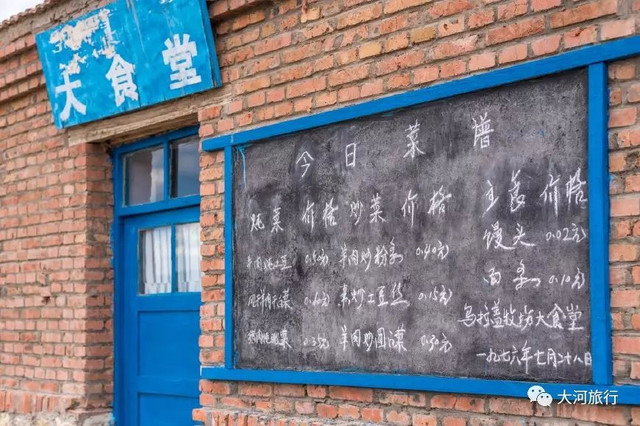 大食堂
今日菜谱
炖菜 价格 炒菜 价格 主食 价格
牛肉炖土豆 0.50元 羊肉炒粉条 0.40元 馒头 0.02元
0.60元 素炒土豆丝 0.15元 面条 0.10元
0.35元 羊肉炒圆菜 0.30元
乌拉盖牧场大食堂
一九七六年七月二十八日
大河旅行